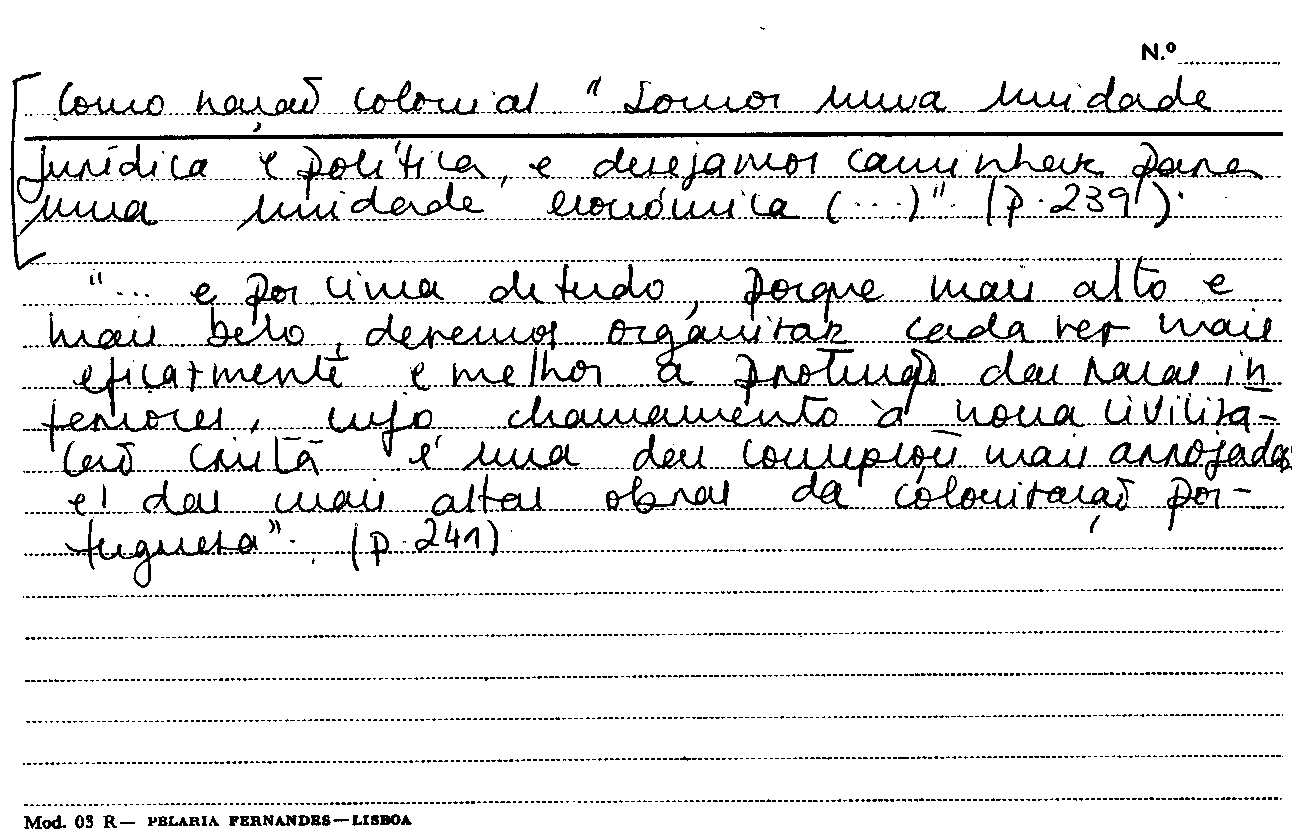 N.º
Como nação colonial "Somos uma unidade
jurídica e política, e desejamos caminhar para
uma unidade económica (...)". (p. 239).
"... e por cima de tudo, porque mais alto e
mais belo, devemos organizar cada vez mais
eficazmente e melhor a protecção das raças in
feriores, cujo chamamento à nossa civiliza-
ção cristã é uma das concepções mais arrojadas
e das mais altas obras da colonização por-
tuguesa". (p. 241)
Mod. 03 R— PELARIA FERNANDES—LISBOA